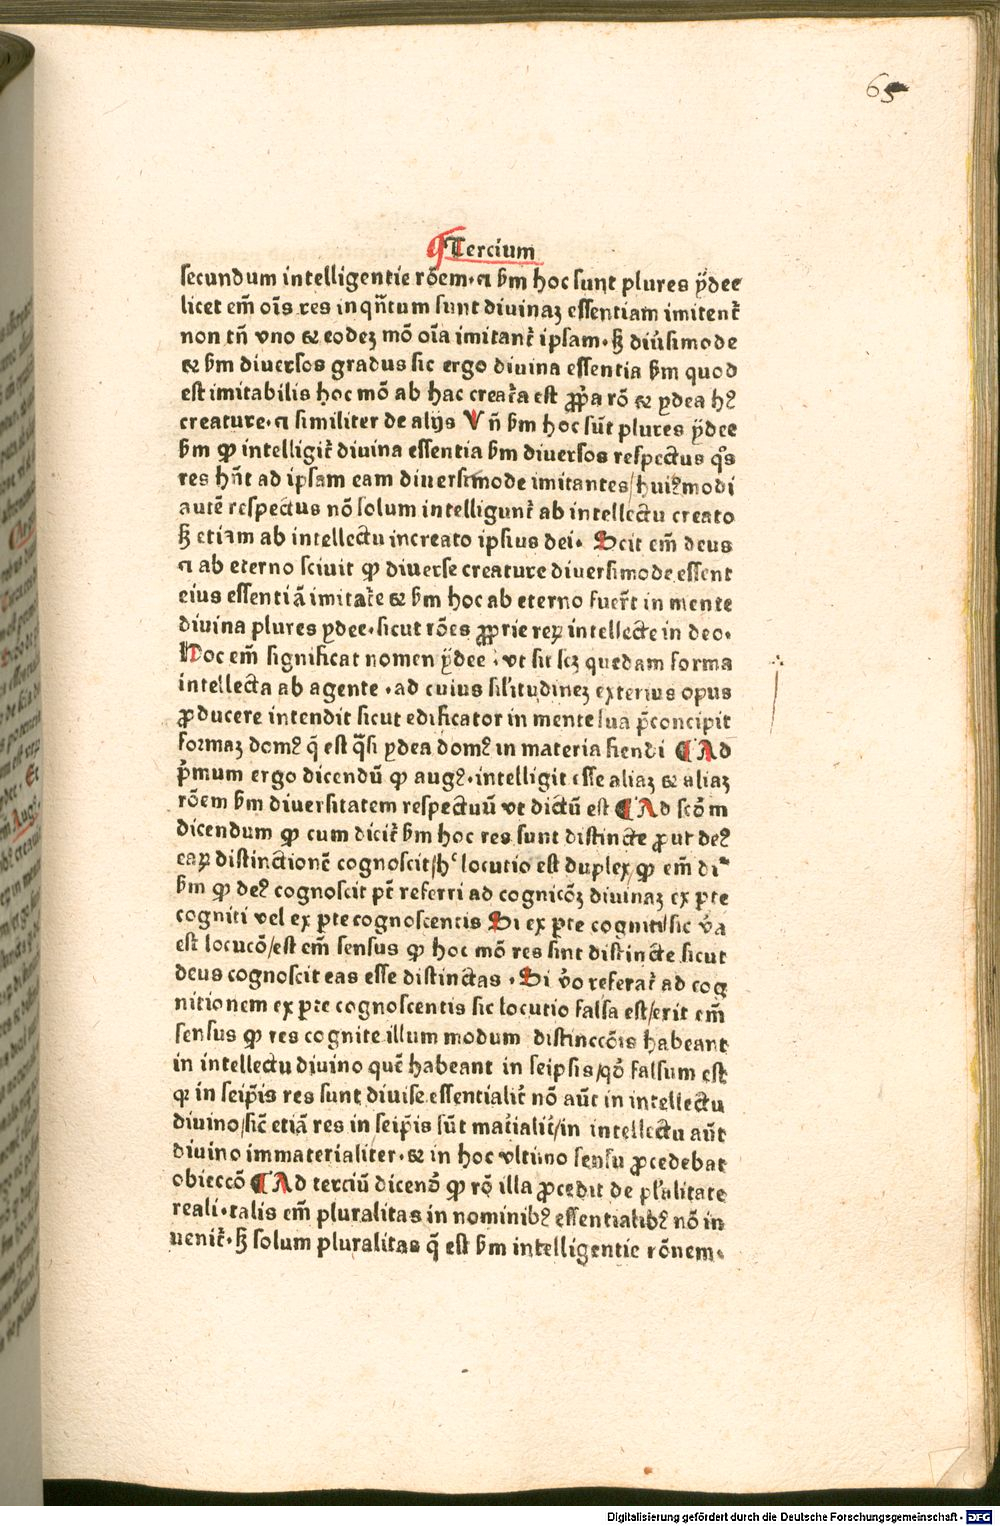 65
Tercium
secundum intelligentie rõem·⁊ ẞm hoc sunt plures ÿdee
licet em̄ oīs res inqñtum sunt divinaꝫ essentiam imitent᷑
non tñ vno & eodeꝫ mõ oīa imitant᷑ ipsam·ꝫ diūsimode
& ẞm diuersos gradus sic ergo divina essentia ẞm quod
est imitabilis hoc mõ ab hac creat᷑a est ꝓp̄a rõ & ydea hꝰ
creature·⁊ similiter de alijs Vñ ẞm hoc sūt plures ÿdee
ẞm ꝙ intelligit᷑ divina essentia ẞm diuersos respectus q̊s
res hñt ad ipsam eam diuersimode imitantes/huiꝰmodi
autē respectus nõ solum intelligunt᷑ ab intellectu creato
ꝫ etiam ab intellectu increato ipsius dei· Scit em̄ deus
⁊ ab eterno sciuit ꝙ diuerse creature diuersimode essent
eius essentiā imitat᷑e & ẞm hoc ab eterno fuer̄t in mente
diuina plures ydee·sicut rões ꝓprie reꝝ intellecte in deo·
Hoc em̄ significat nomen ÿdee·vt sit scꝫ quedam forma
intellecta ab agente·ad cuius sil̄itudineꝫ exterius opus
ꝓducere intendit sicut edificator in mente sua p̄concipit
formaꝫ domꝰ q̄ est q̄si ydea domꝰ in materia fiendi ¶ Ad
p̄mum ergo dicendū ꝙ augꝰ·intelligit esse aliaꝫ & aliaꝫ
rõem ẞm diuersitatem respectuū vt dictū est ¶ Ad scõm
dicendum ꝙ cum dicit᷑ ẞm hoc res sunt distincte ꝓut deꝰ
eaꝝ distinctionē cognoscit/hᶜ locutio est duplex/ꝙ em̄ di᷑
ẞm ꝙ deꝰ cognoscit pt̄ referri ad cognicõꝫ diuinaꝫ ex ꝑte
cogniti vel ex ꝑte cognoscentis Si ex ꝑte cogniti/sic v̄a
est locucõ/est em̄ sensus ꝙ hoc mõ res sint distincte sicut
deus cognoscit eas esse distinctas·Si v̊o referat᷑ ad cog
nitionem ex ꝑte cognoscentis sic locutio falsa est/erit em̄
sensus ꝙ res cognite illum modum distinccõis habeant
in intellectu diuino quē habeant in seipsis/qõ falsum est
qꝛ in seip̄is res sunt diuise essentialit᷑ nõ aūt in intellectu
diuino/sic̄ etiā res in seip̄is sūt mat᷑ialit᷑/in intellectu aūt
diuino immaterialiter·& in hoc vltimo sensu ꝓcedebat
obieccõ ¶ Ad terciū dicenđ ꝙ rõ illa ꝓcedit de pl᷑alitate
reali·talis em̄ pluralitas in nominibꝰ essentialibꝰ nõ in
uenit᷑·ꝫ solum pluralitas q̄ est ẞm intelligentie rõnem·
Digitalisierung gefördert durch die Deutsche Forschungsgemeinschaft - DFG